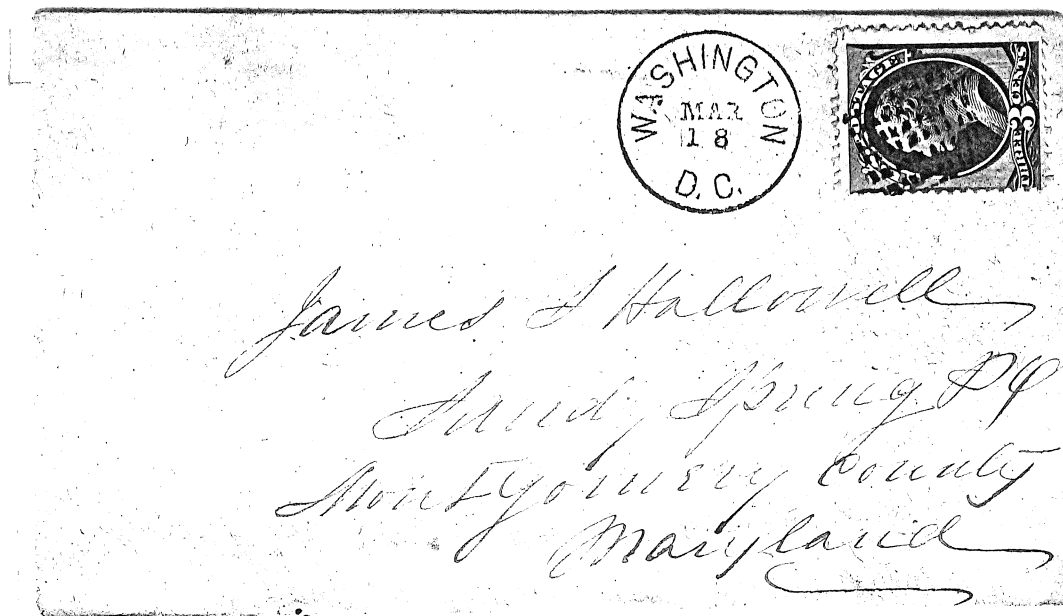 WASHINGTON
MAR
18
D.C.
James S Hallowell
Sandy Spring PO
Montgomery County
Maryland